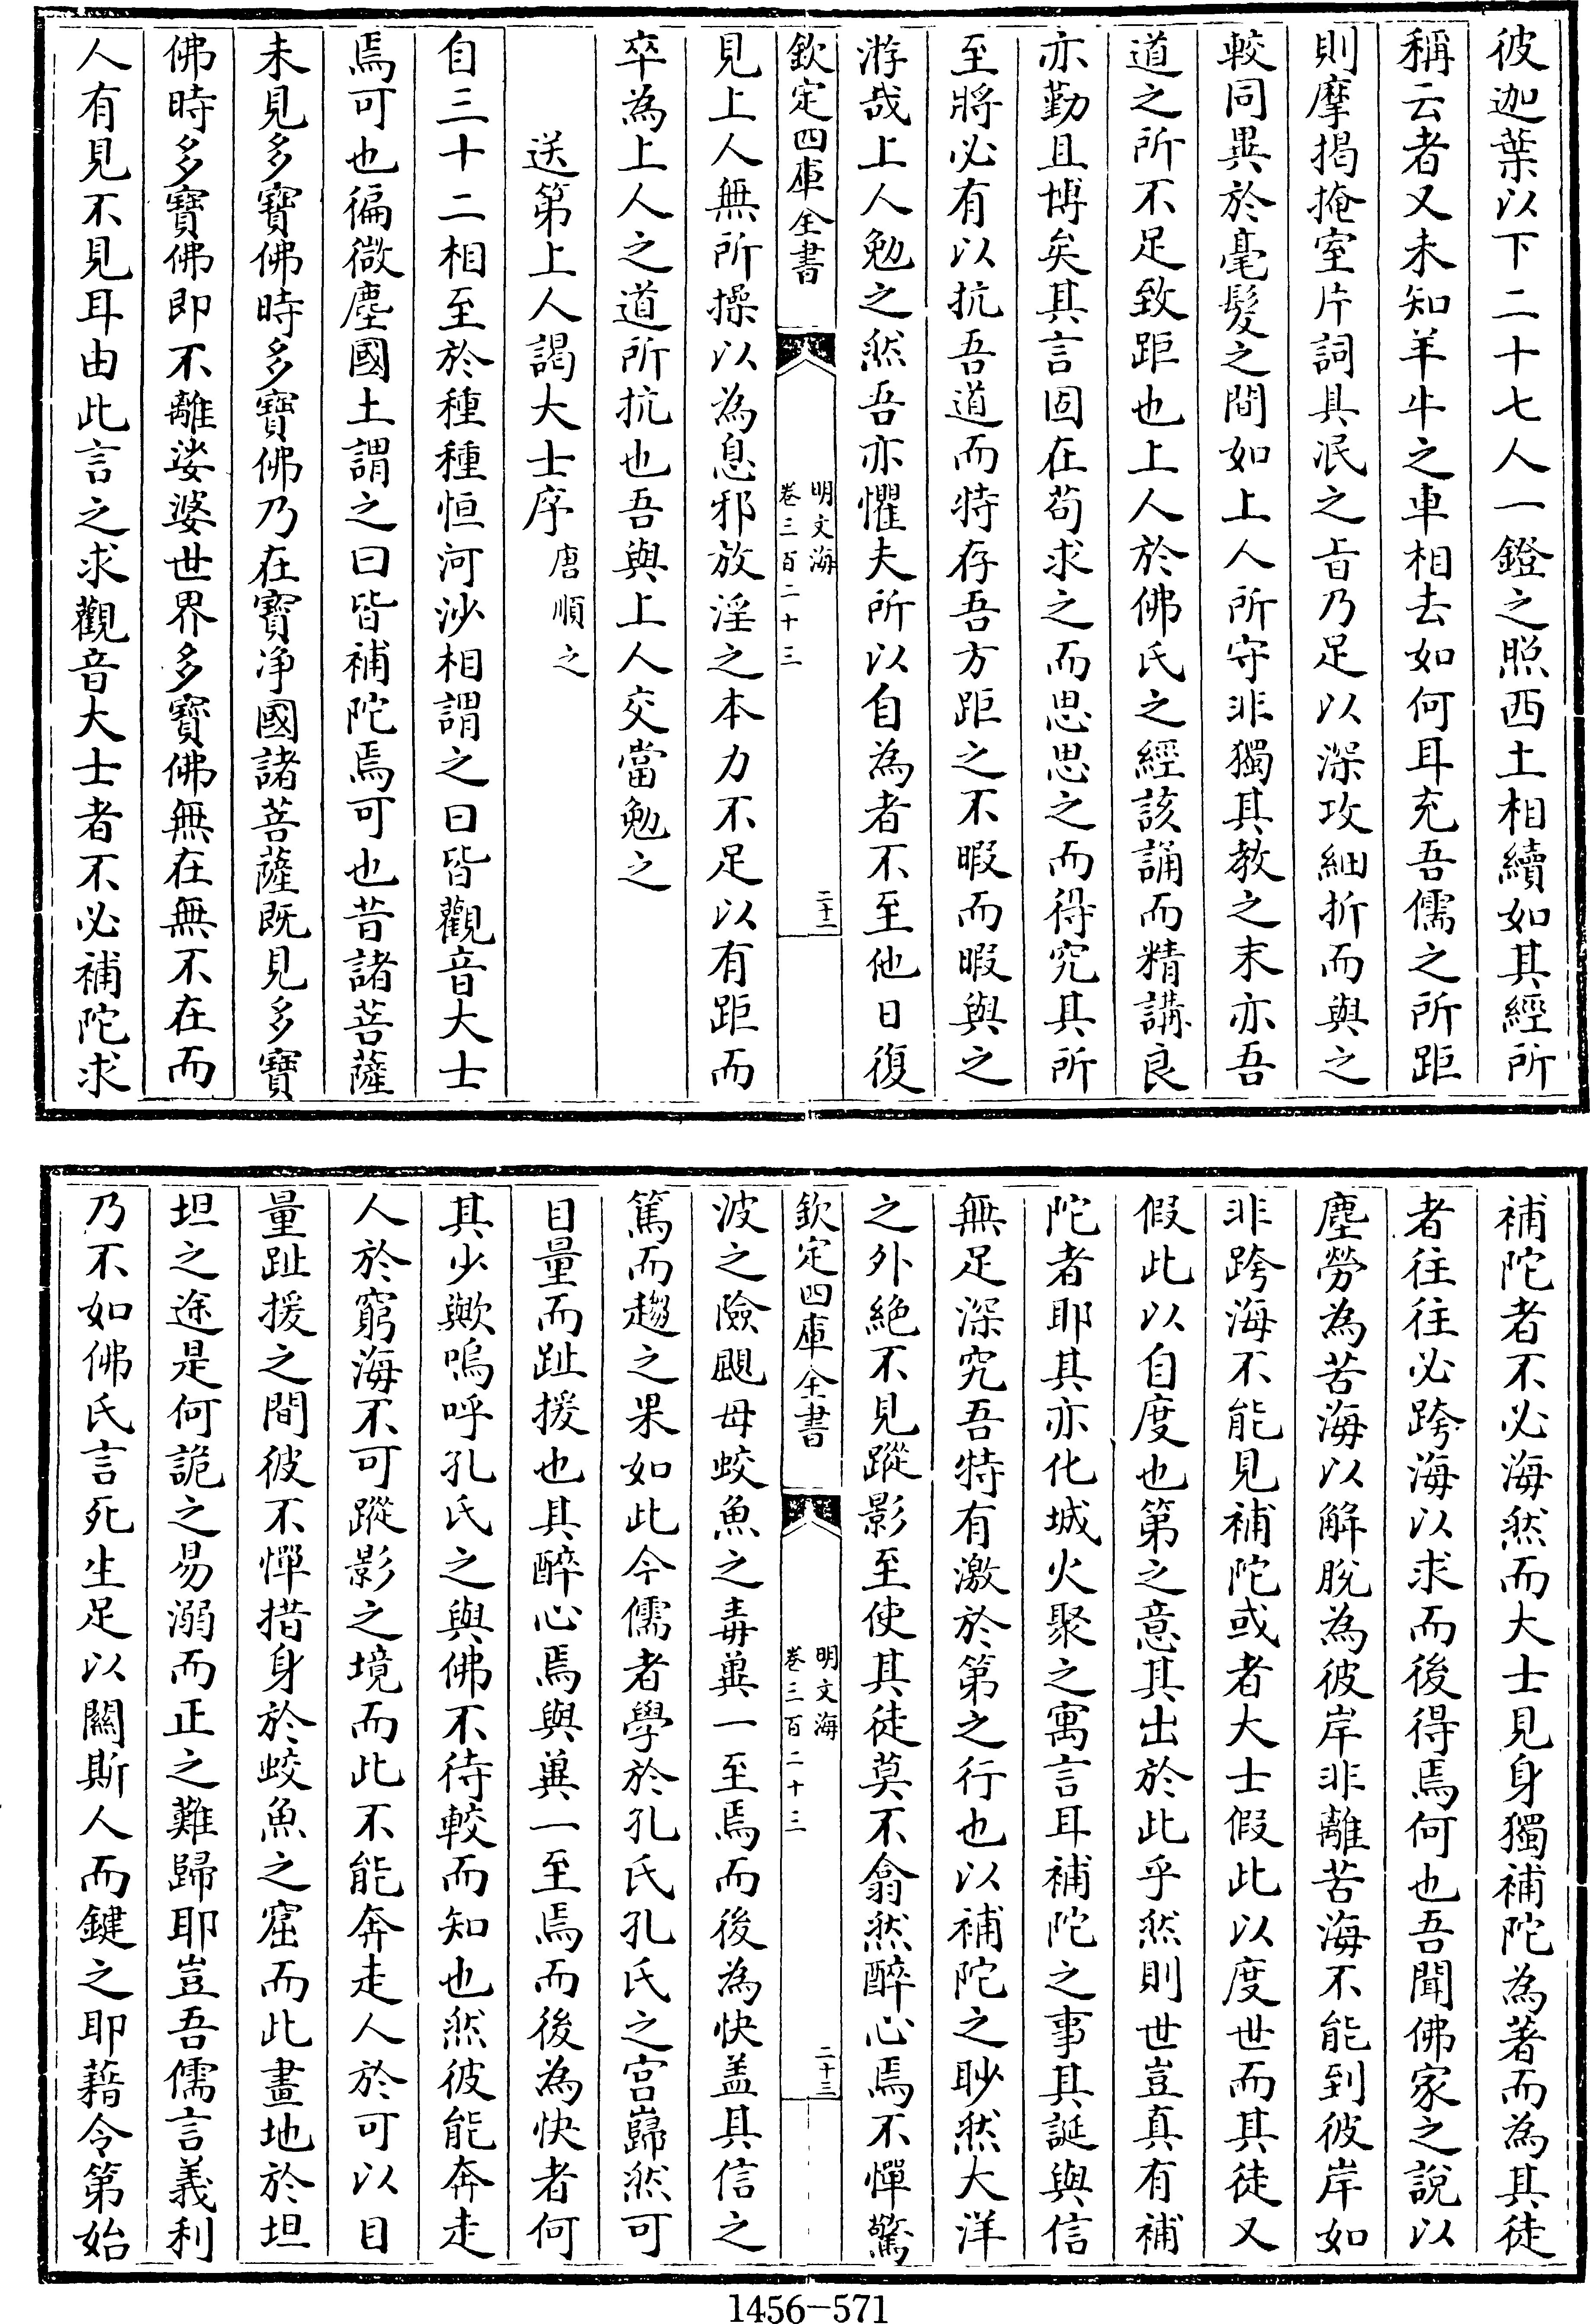 彼迦葉以下二十七人一鐙之照西土相續如其經所
稱云者又未知羊牛之車相去如何耳充吾儒之所距
則摩揭掩室片詞具泯之㫖乃足以深攻細折而與之
較同異於毫髮之間如上人所守非獨其教之末亦吾
道之所不足致距也上人於佛氏之經該誦而精講良
亦勤且博矣其言固在茍求之而思思之而得究其所
至將必有以抗吾道而特存吾方距之不暇而暇與之
游哉上人勉之然吾亦懼夫所以自為者不至他日復
欽定四庫全書
明文海
卷三百二十三
二十二
見上人無所操以為息邪放淫之本力不足以有距而
卒為上人之道所抗也吾與上人交當勉之
送第上人謁大士序唐順之
自三十二相至於種種恒河沙相謂之曰皆觀音大士
焉可也徧微塵國土謂之曰皆補陀焉可也昔諸菩薩
未見多寶佛時多寶佛乃在寶净國諸菩薩既見多寶
佛時多寶佛即不離娑婆世界多寶佛無在無不在而
人有見不見耳由此言之求觀音大士者不必補陀求
補陀者不必海然而大士見身獨補陀為著而為其徒
者往往必跨海以求而後得焉何也吾聞佛家之說以
塵勞為苦海以解脫為彼岸非離苦海不能到彼岸如
非跨海不能見補陀或者大士假此以度世而其徒又
假此以自度也第之意其出於此乎然則世豈真有補
陀者耶其亦化城火聚之寓言耳補陀之事其誕與信
無足深究吾特有激於第之行也以補陀之眇然大洋
之外絶不見蹤影至使其徒莫不翕然醉心焉不憚驚
欽定四庫全書
明文海
卷三百二十三
二十三
波之險颶母蛟魚之毒兾一至焉而後為快盖其信之
篤而趨之果如此今儒者學於孔氏孔氏之宫巋然可
目量而趾援也其醉心焉與兾一至焉而後為快者何
其少歟嗚呼孔氏之與佛不待較而知也然彼能奔走
人於窮海不可蹤影之境而此不能奔走人於可以目
量趾援之間彼不憚措身於蛟魚之窟而此畫地於坦
坦之途是何詭之易溺而正之難歸耶豈吾儒言義利
乃不如佛氏言死生足以闗斯人而鍵之耶藉令第始
1456-571